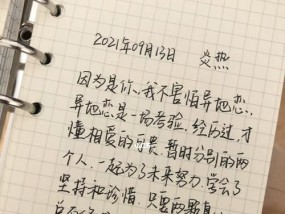 2021年09月13日 炎热
因为是你、我不害怕异地恋、
异地恋是一场考验、经历过、才
懂相爱的可贵、暂时分别的两
个人、一起为了未来努力、学会了
坚持和珍惜、只要两颗真